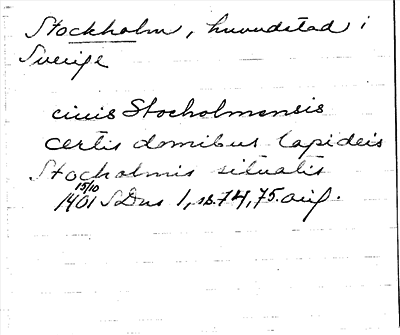 Stockholm, huvudstad i
Sverige
ciuis Stocholmensis
certis domibus lapideis
Stocholmis situatis
15/10
1401 SDns 1, s. 74, 75. orig.